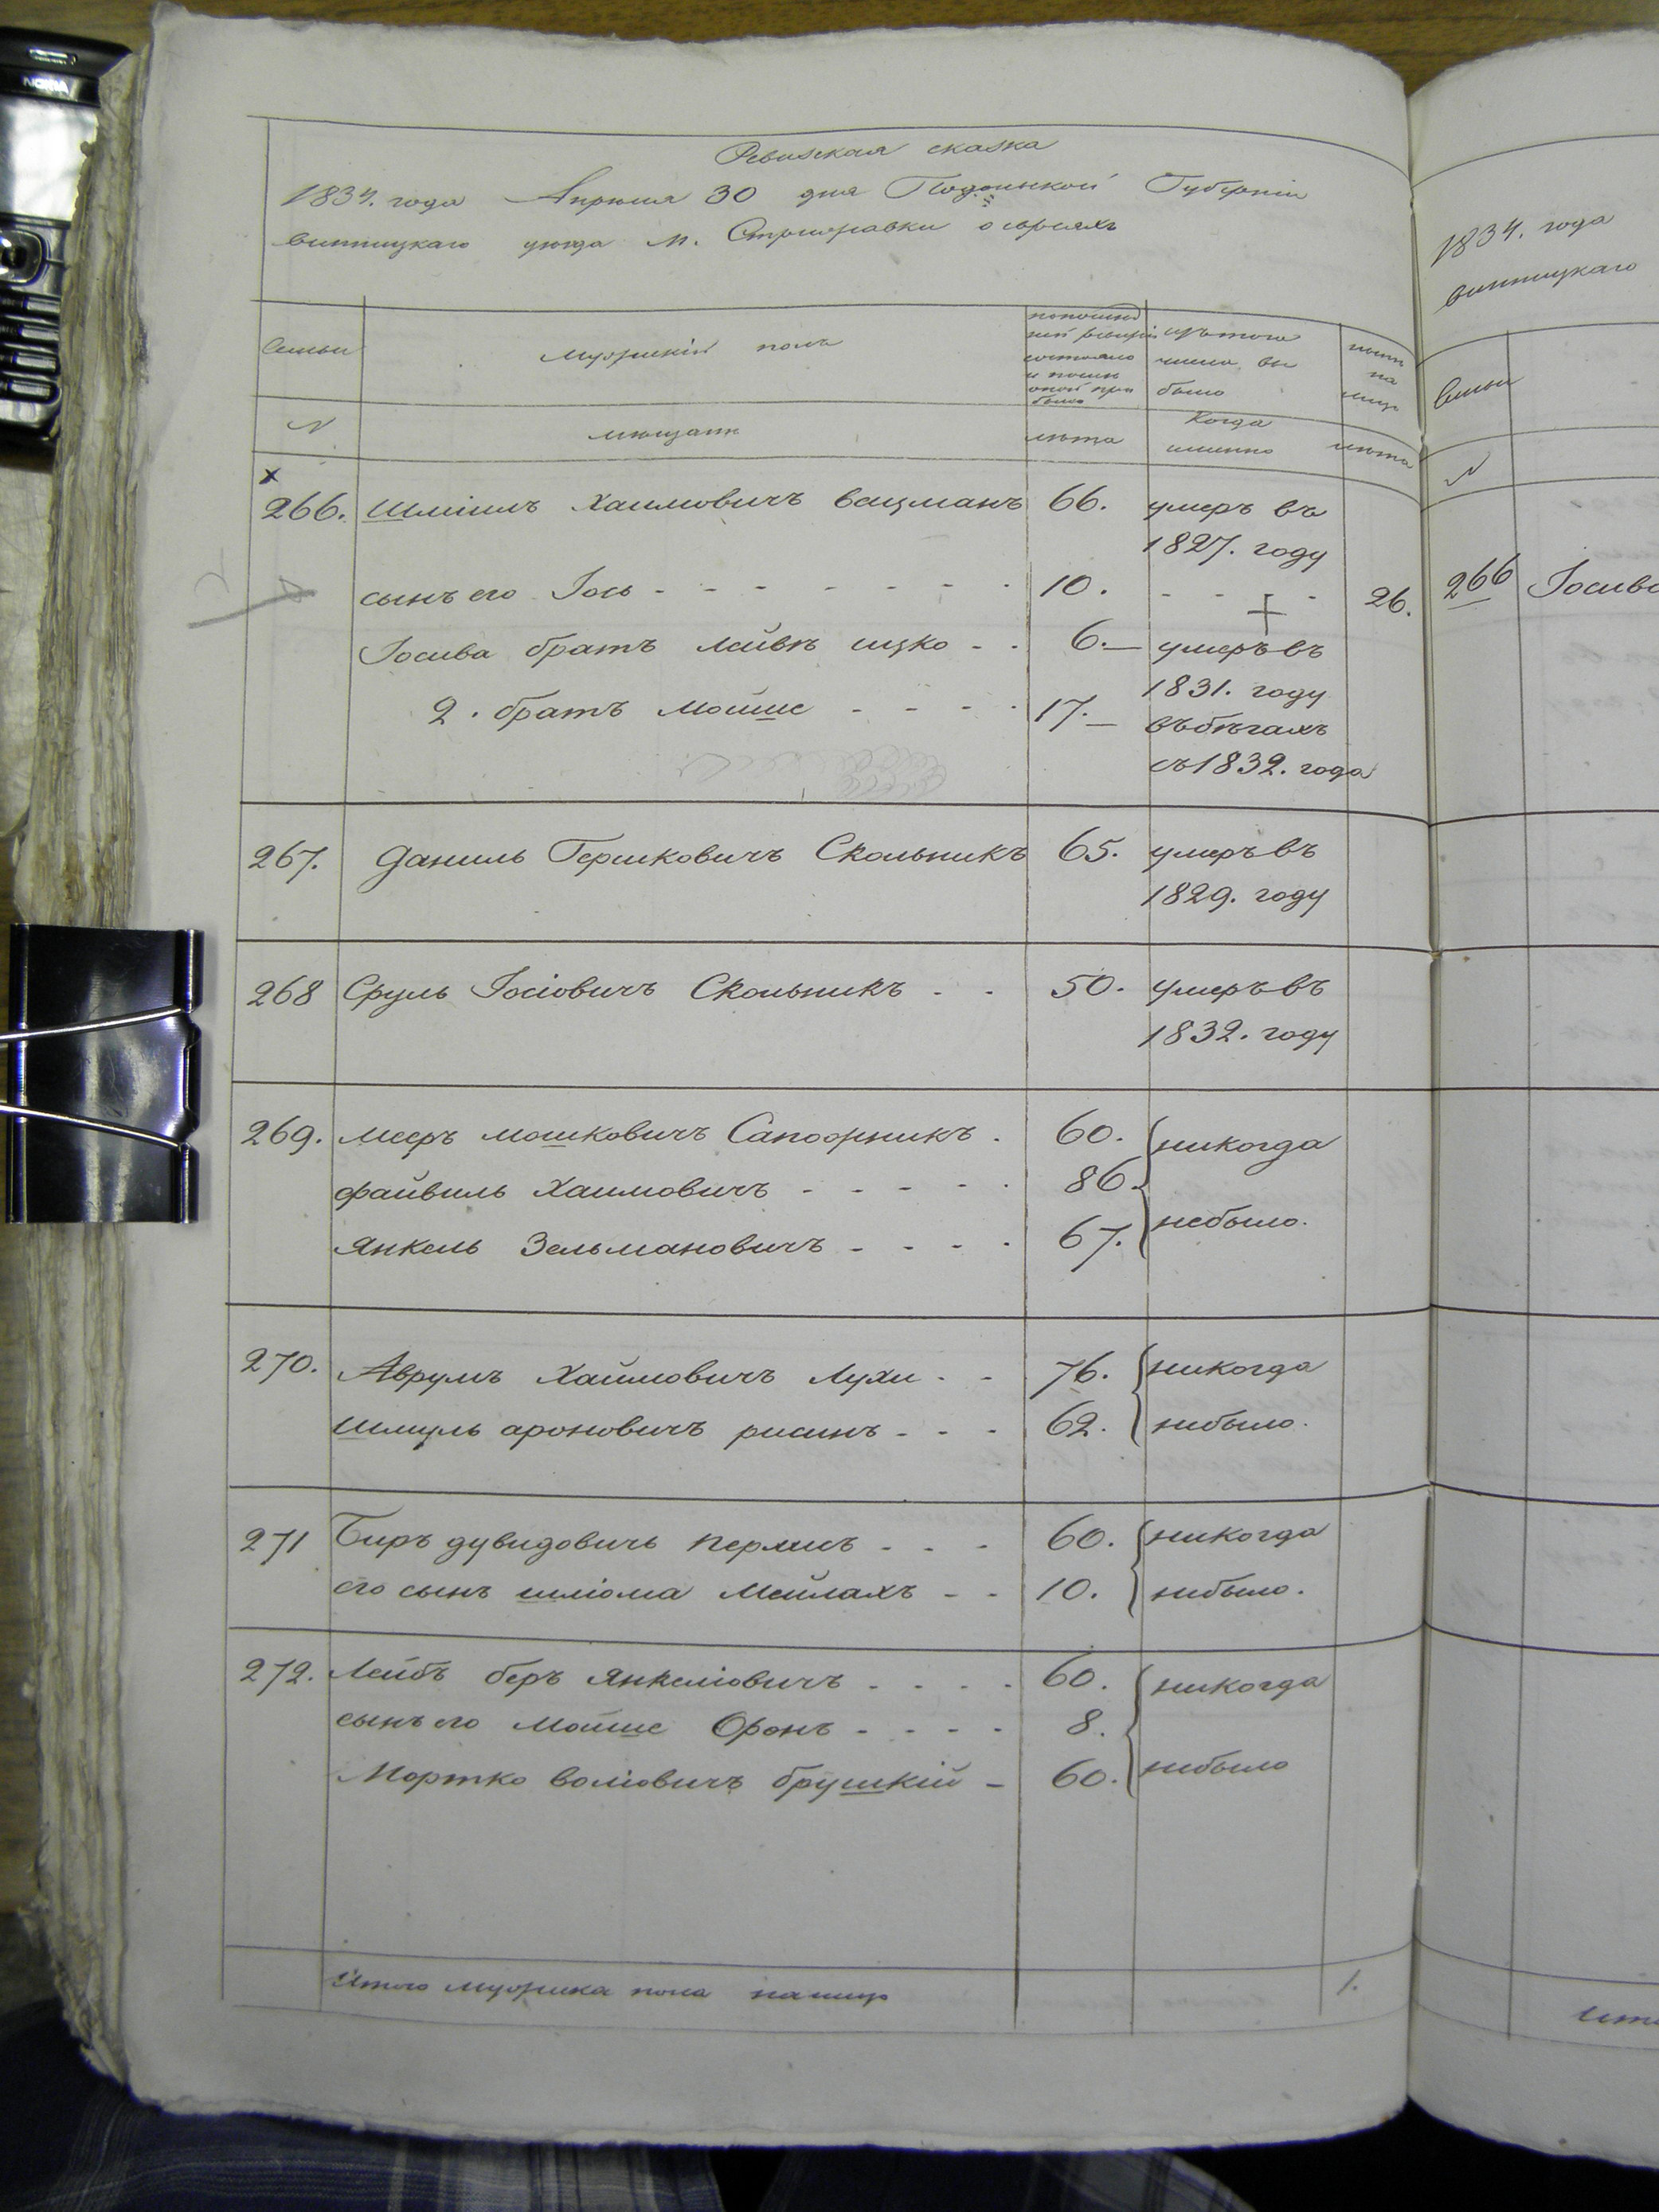 NOKIA
Ревизская сказка
1834. года Апреля 30 дня Подольской Губернии
винницкаго уезда м. Стрижавки о евреяхъ
Семьи
Мужеский полъ
изъ того
числа вы
было
№
мещане
лета
Когда
именно
лета
266. Шмиилъ Хаимовичъ вацманъ 66. умеръ въ
1827. году
сынъ его Іось - - - - - - - 10. - - - - 26.
Іосива братъ Лейвъ ицко - - 6. умеръ въ
1831. году
2. братъ Мойше - - - - 17. въ бегахъ
съ 1832. года
267. Даниль Гершковичъ Скольникъ 65. умеръ въ
1829. году
268 Сруль Іосіовичъ Скольникъ - - 50. умеръ въ
1832. году
269. Мееръ мошковичъ Сапожникъ. 60. никогда
файвиль Хаимовичъ - - - - - 86.
небыло.
Янкель Зельмановичъ - - - - 67.
270. Аврумъ Хаймовичъ Лухи - - 76. никогда
Шмуль ароновичъ рисинъ - - - 62. небыло.
271 Биръ дувидовичь перлисъ - - - 60. никогда
его сынъ шліома Мейлахъ - - 10. небыло.
272. Лейбъ беръ Янкеліовичъ - - - - 60. никогда
сынъ его Мойше Оронъ - - - - 8.
Мортко воліовичъ брушкій - 60. небыло
Итого мужеска пола налицо 1.
1834. года
винницкаго
Семьи
№
266 Іосиво